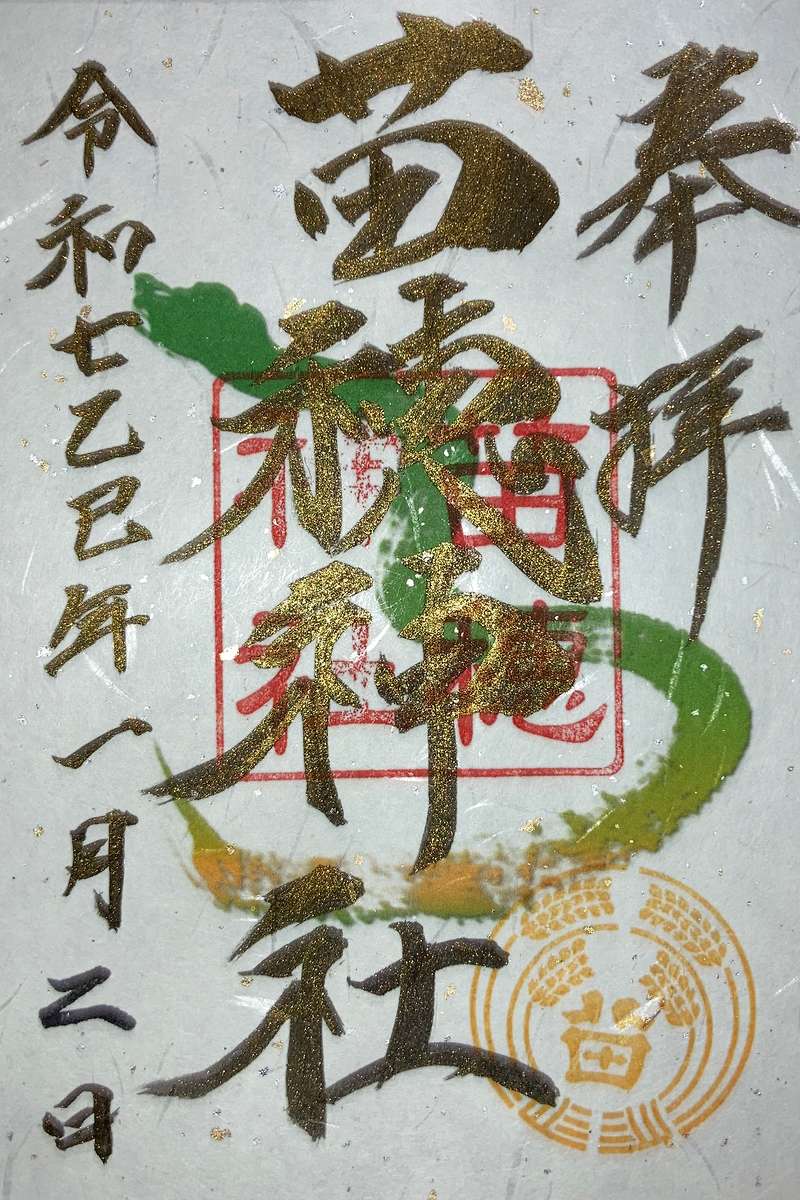 奉拝
苗穂神社
苗穂
神社
令和七乙巳年一月二日
苗